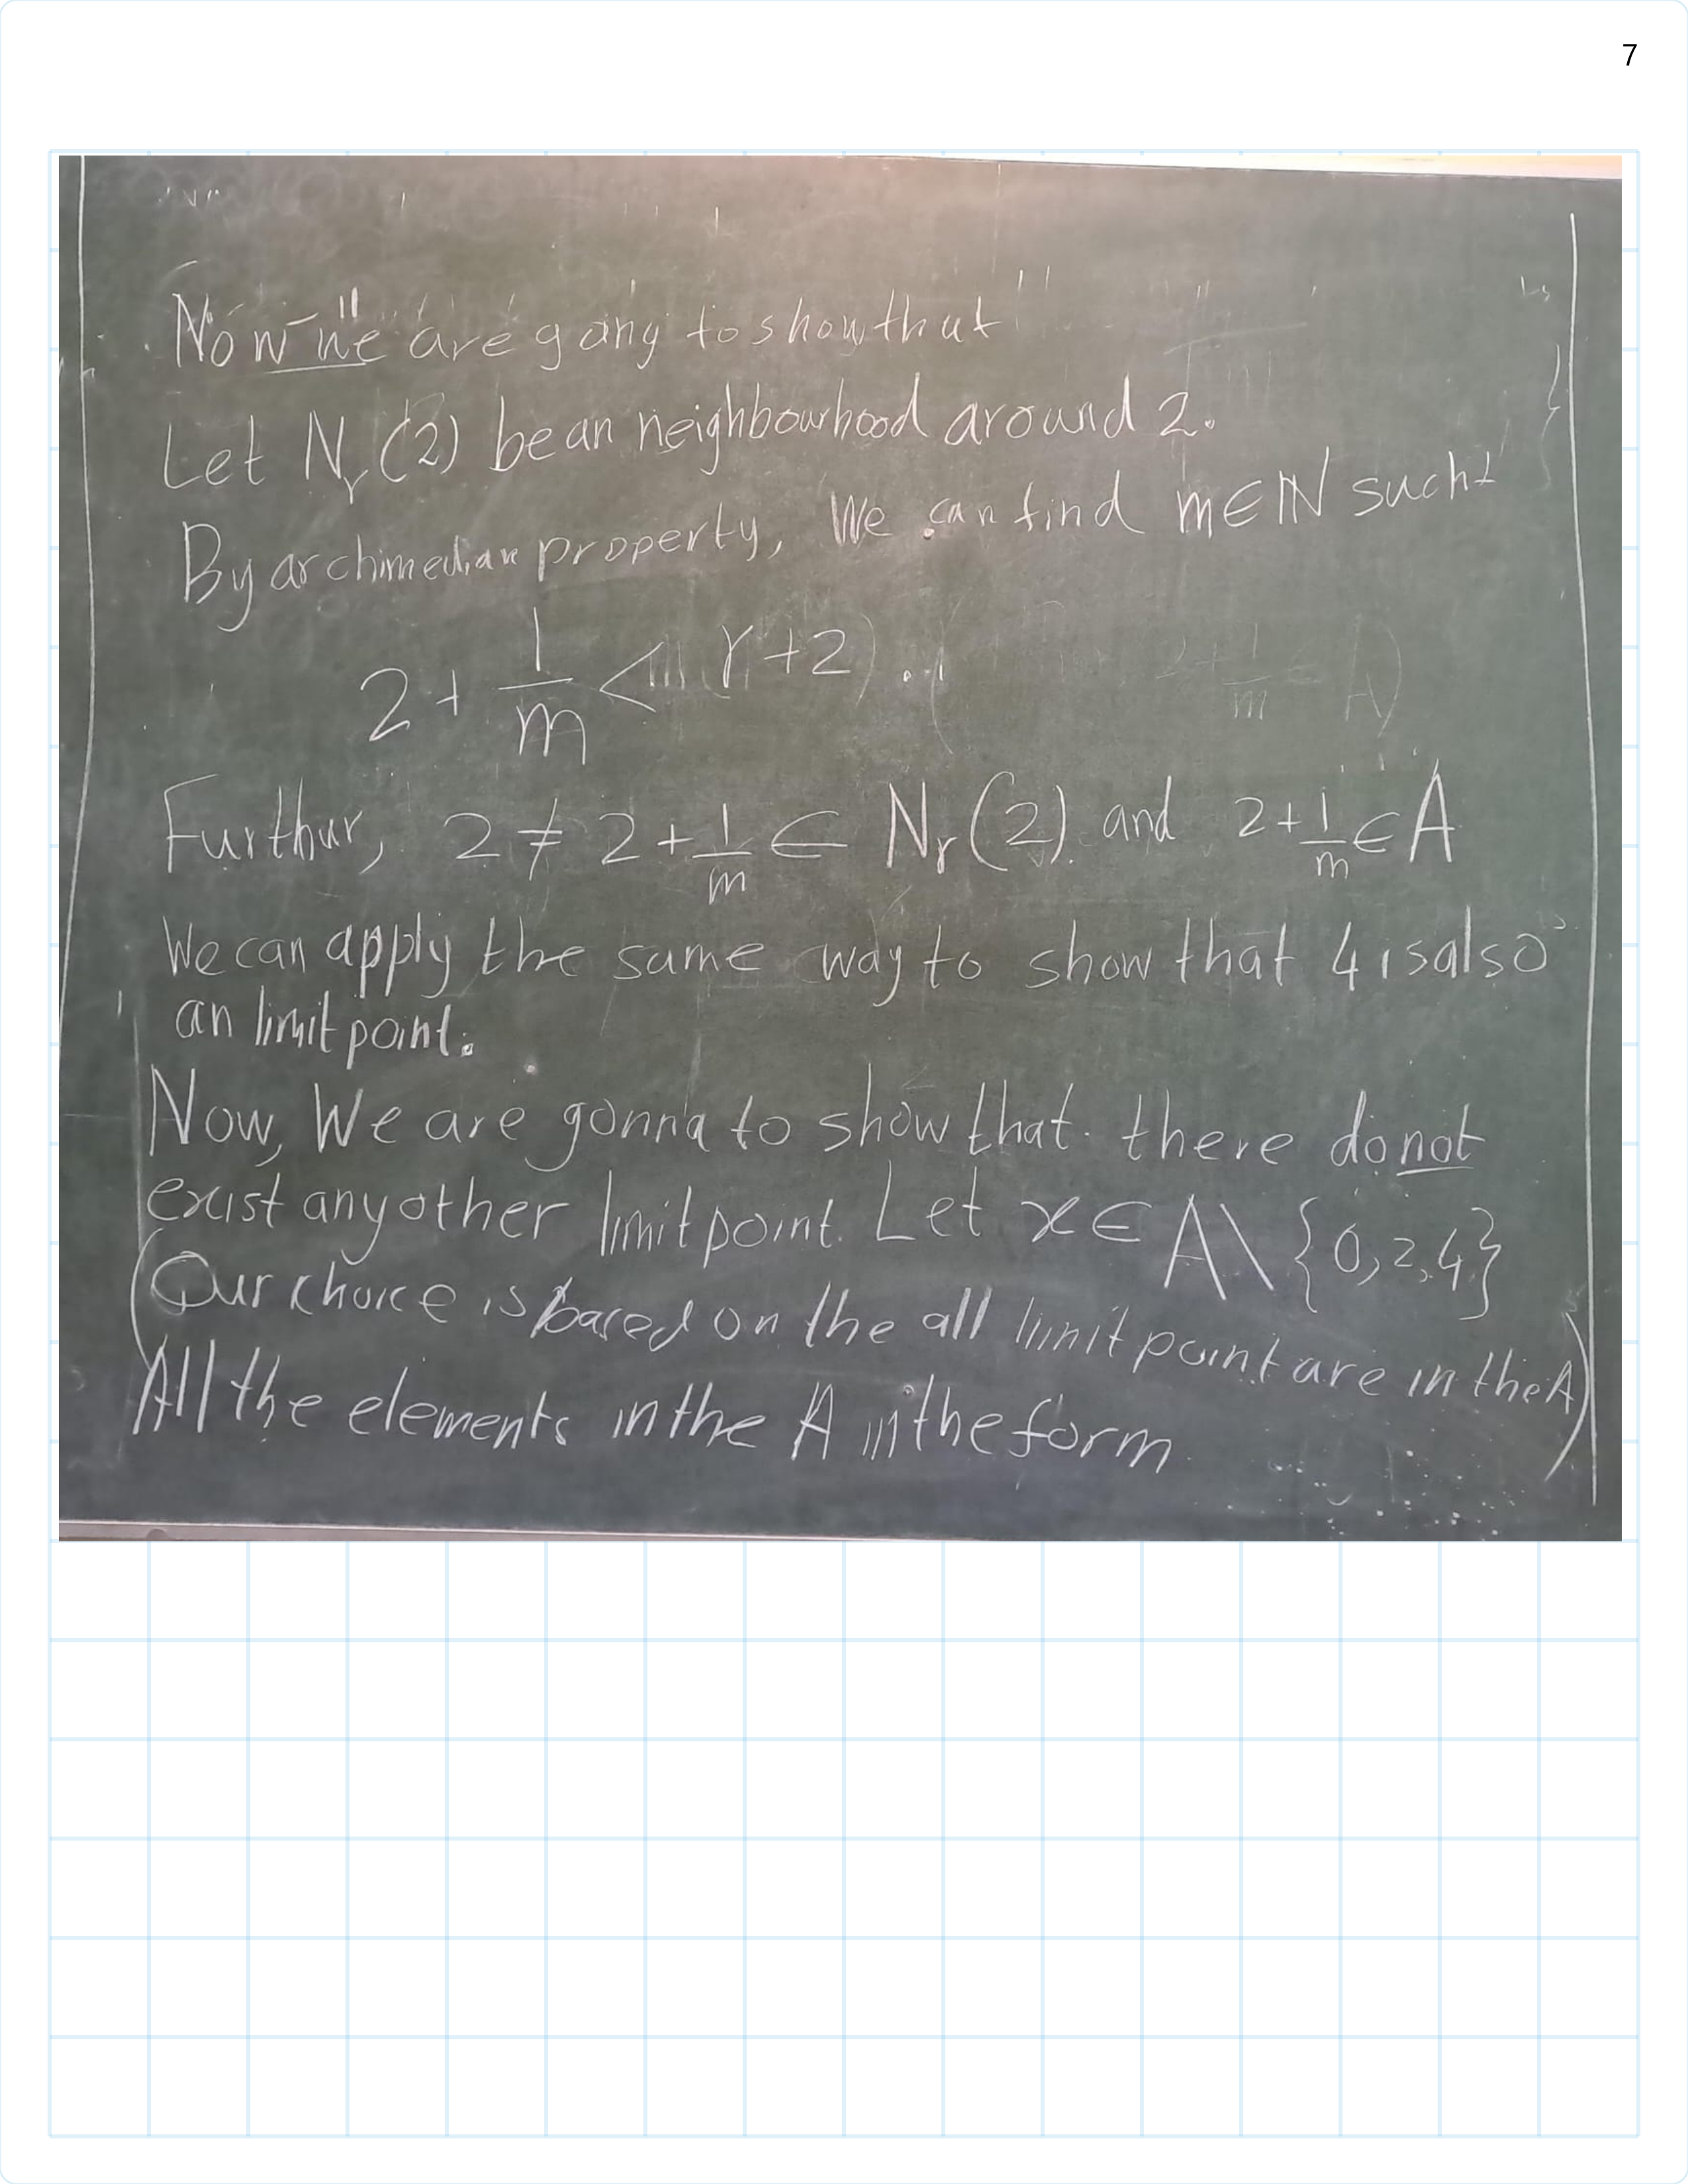 7
Now we are going to show that
Let Nr(2) be an neighbourhood around 2.
By archimedian property, We can find m∈ℕ such
2 + 1/m < r+2) ..
Furthur, 2 ≠ 2 + 1/m ∈ Nr(2) and 2+1/m ∈ A
We can apply the same way to show that 4 is also
an limit point.
Now, We are gonna to show that there do not
exist any other limit point. Let x ∈ A\{0,2,4}
(Our choice is based on the all limit point are in the A)
All the elements in the A in the form